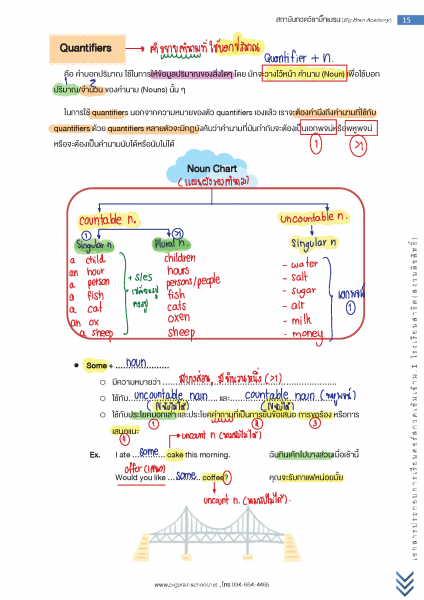 สถาบันกวดวิชาบิ๊กเบรน (Big Brain Academy) 15
Quantifiers → คำขยายคำนามที่ใช้บอกปริมาณ
Quantifier + n.
คือ คำบอกปริมาณ ใช้ในการให้ข้อมูลปริมาณของสิ่งใดๆ โดย มักจะวางไว้หน้า คำนาม (Noun) เพื่อใช้บอก
ปริมาณ/จำนวน ของคำนาม (Nouns) นั้น ๆ
ในการใช้ quantifiers นอกจากความหมายของตัว quantifiers เองแล้ว เราจะต้องคำนึงถึงคำนามที่ใช้กับ
quantifiers ด้วย quantifiers หลายตัวจะมีกฎบังคับว่าคำนามที่นับกำกับจะต้องเป็นเอกพจน์หรือพหูพจน์
หรือจะต้องเป็นคำนามนับได้หรือนับไม่ได้
① >1
Noun Chart
(แผนผังของคำนาม)
countable n. uncountable n.
① >1
Singular n. Plural n. Singular n
a child children - water
an hour hours - salt
a person persons/people - sugar
a fish fish - air
a cat cats - milk
an ox oxen - money
a sheep sheep
+ s/es
เอกพจน์
①
● Some + noun
○ มีความหมายว่า มีบางส่วน, มีจำนวนหนึ่ง (>1)
○ ใช้กับ uncountable noun และ countable noun (พหูพจน์)
(Nนับไม่ได้) (Nนับได้)
○ ใช้กับประโยคบอกเล่า และประโยคคำถามที่เป็นการยื่นข้อเสนอ การขอร้อง หรือการ
① ② ③
เสนอแนะ
④
uncount n. (นามนับไม่ได้)
Ex. I ate some cake this morning. ฉันกินเค้กไปบางส่วนเมื่อเช้านี้
offer (เสนอ)
Would you like some coffee? คุณจะรับกาแฟหน่อยมั้ย
uncount n. (นามนับไม่ได้)
www.bigbrainschool.net , โทร 094-664-4465